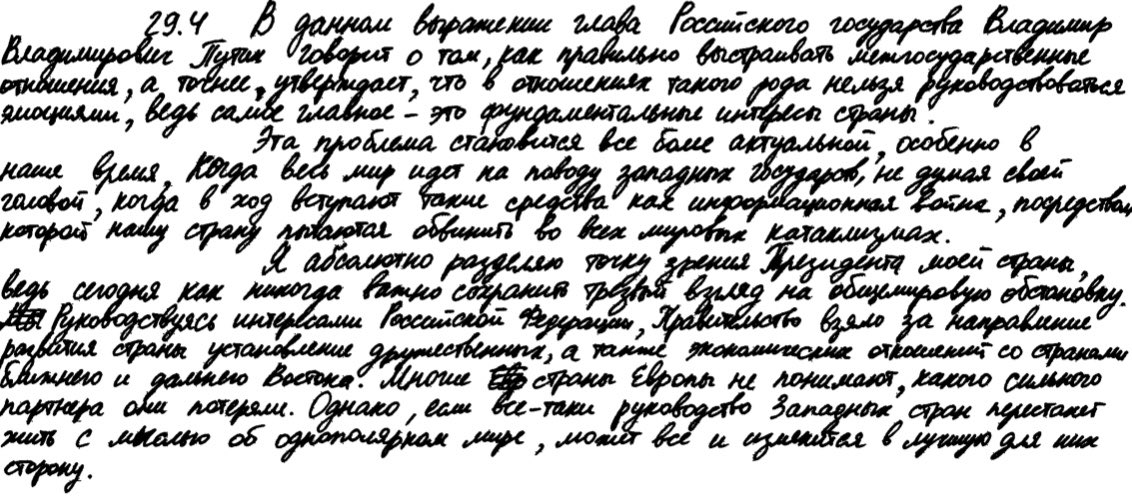 29.4 В данном выражении глава Российского государства Владимир
Владимирович Путин говорит о том, как правильно выстраивать межгосударственные
отношения, а точнее, утверждает, что в отношениях такого рода нельзя руководствоваться
эмоциями, ведь самое главное – это фундаментальные интересы страны.
Эта проблема становится все более актуальной, особенно в
наше время, когда весь мир идет на поводу западных государств, не думая своей
головой, когда в ход вступают такие средства как информационная война, посредством
которой нашу страну пытаются обвинить во всех мировых катаклизмах.
Я абсолютно разделяю точку зрения Президента моей страны,
ведь сегодня как никогда важно сохранить трезвый взгляд на общемировую обстановку.
Руководствуясь интересами Российской Федерации, Правительство взяло за направление
развития страны установление дружественных, а также экономических отношений со странами
ближнего и дальнего Востока. Многие страны Европы не понимают, какого сильного
партнера они потеряли. Однако, если все-таки руководство Западных стран перестанет
жить с мыслью об однополярном мире, может все и изменится в лучшую для них
сторону.